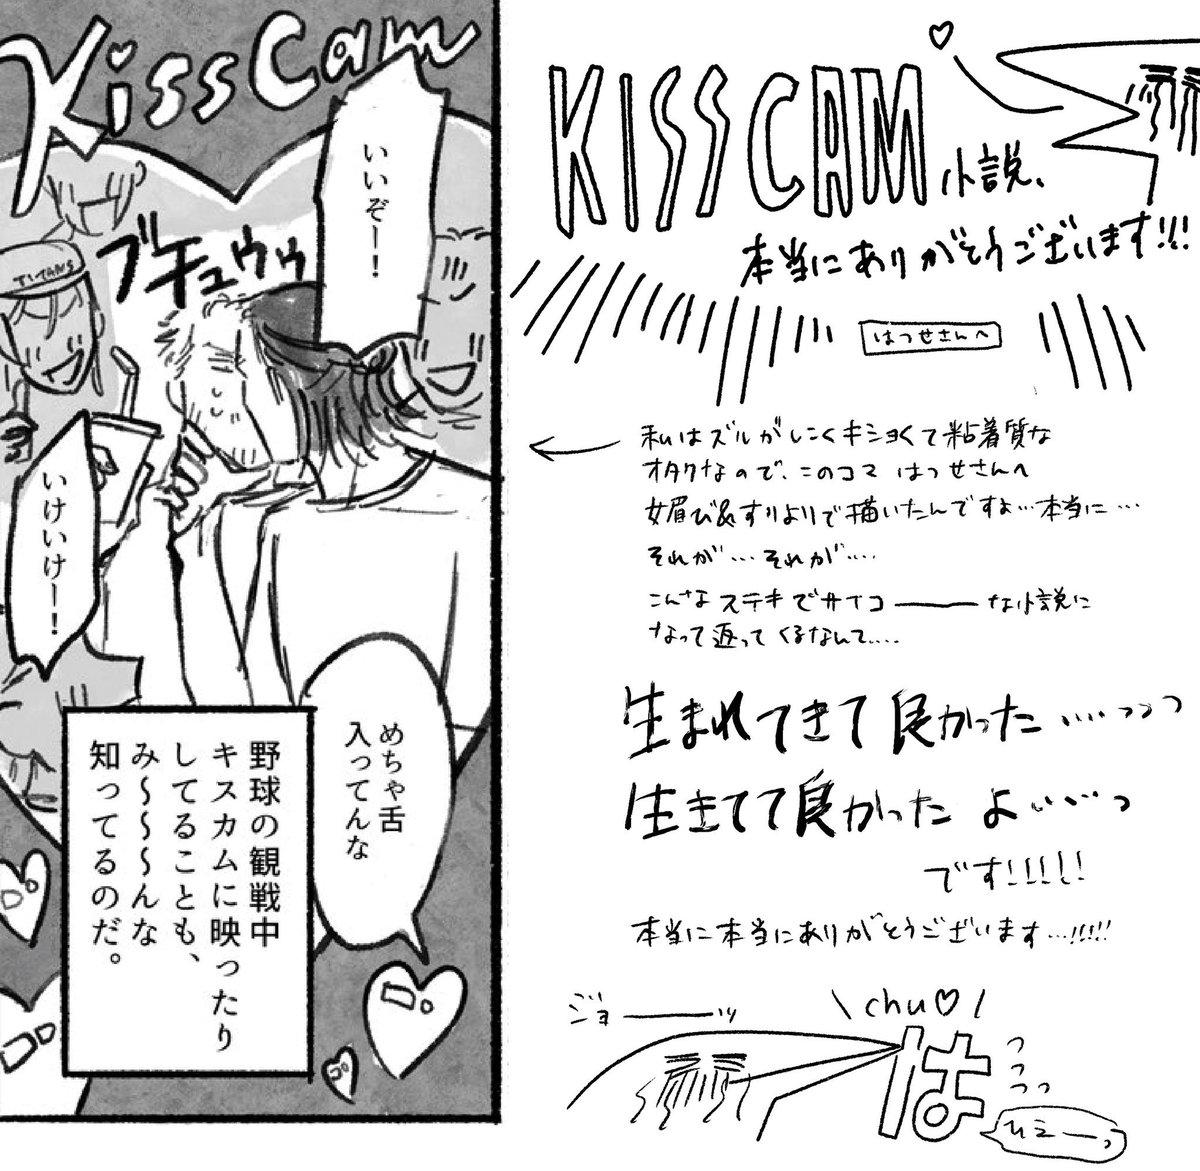 Kiss Cam
いいぞー!
TITANS
ブチュゥゥ
いけいけー!
めちゃ舌
入ってんな
野球の観戦中
キスカムに映ったり
してることも、
み〜〜〜んな
知ってるのだ。
KISS CAM
小説、
本当にありがとうございます!!!
はつせさんへ
私はズルがしこくキショくて粘着質な
オタクなので、このコマ はつせさんへ
媚び&すりよりで描いたんですよ…本当に…
それが…それが….
こんなステキでサイコーーな小説に
なって返ってくるなんて….
生まれてきて良かった……っっっ
生きてて良かったよ……っ
です!!!!!
本当に本当にありがとうございます…!!!!!
ジョーーッ
\chu♡/
は
っっっっ
ひえーっ